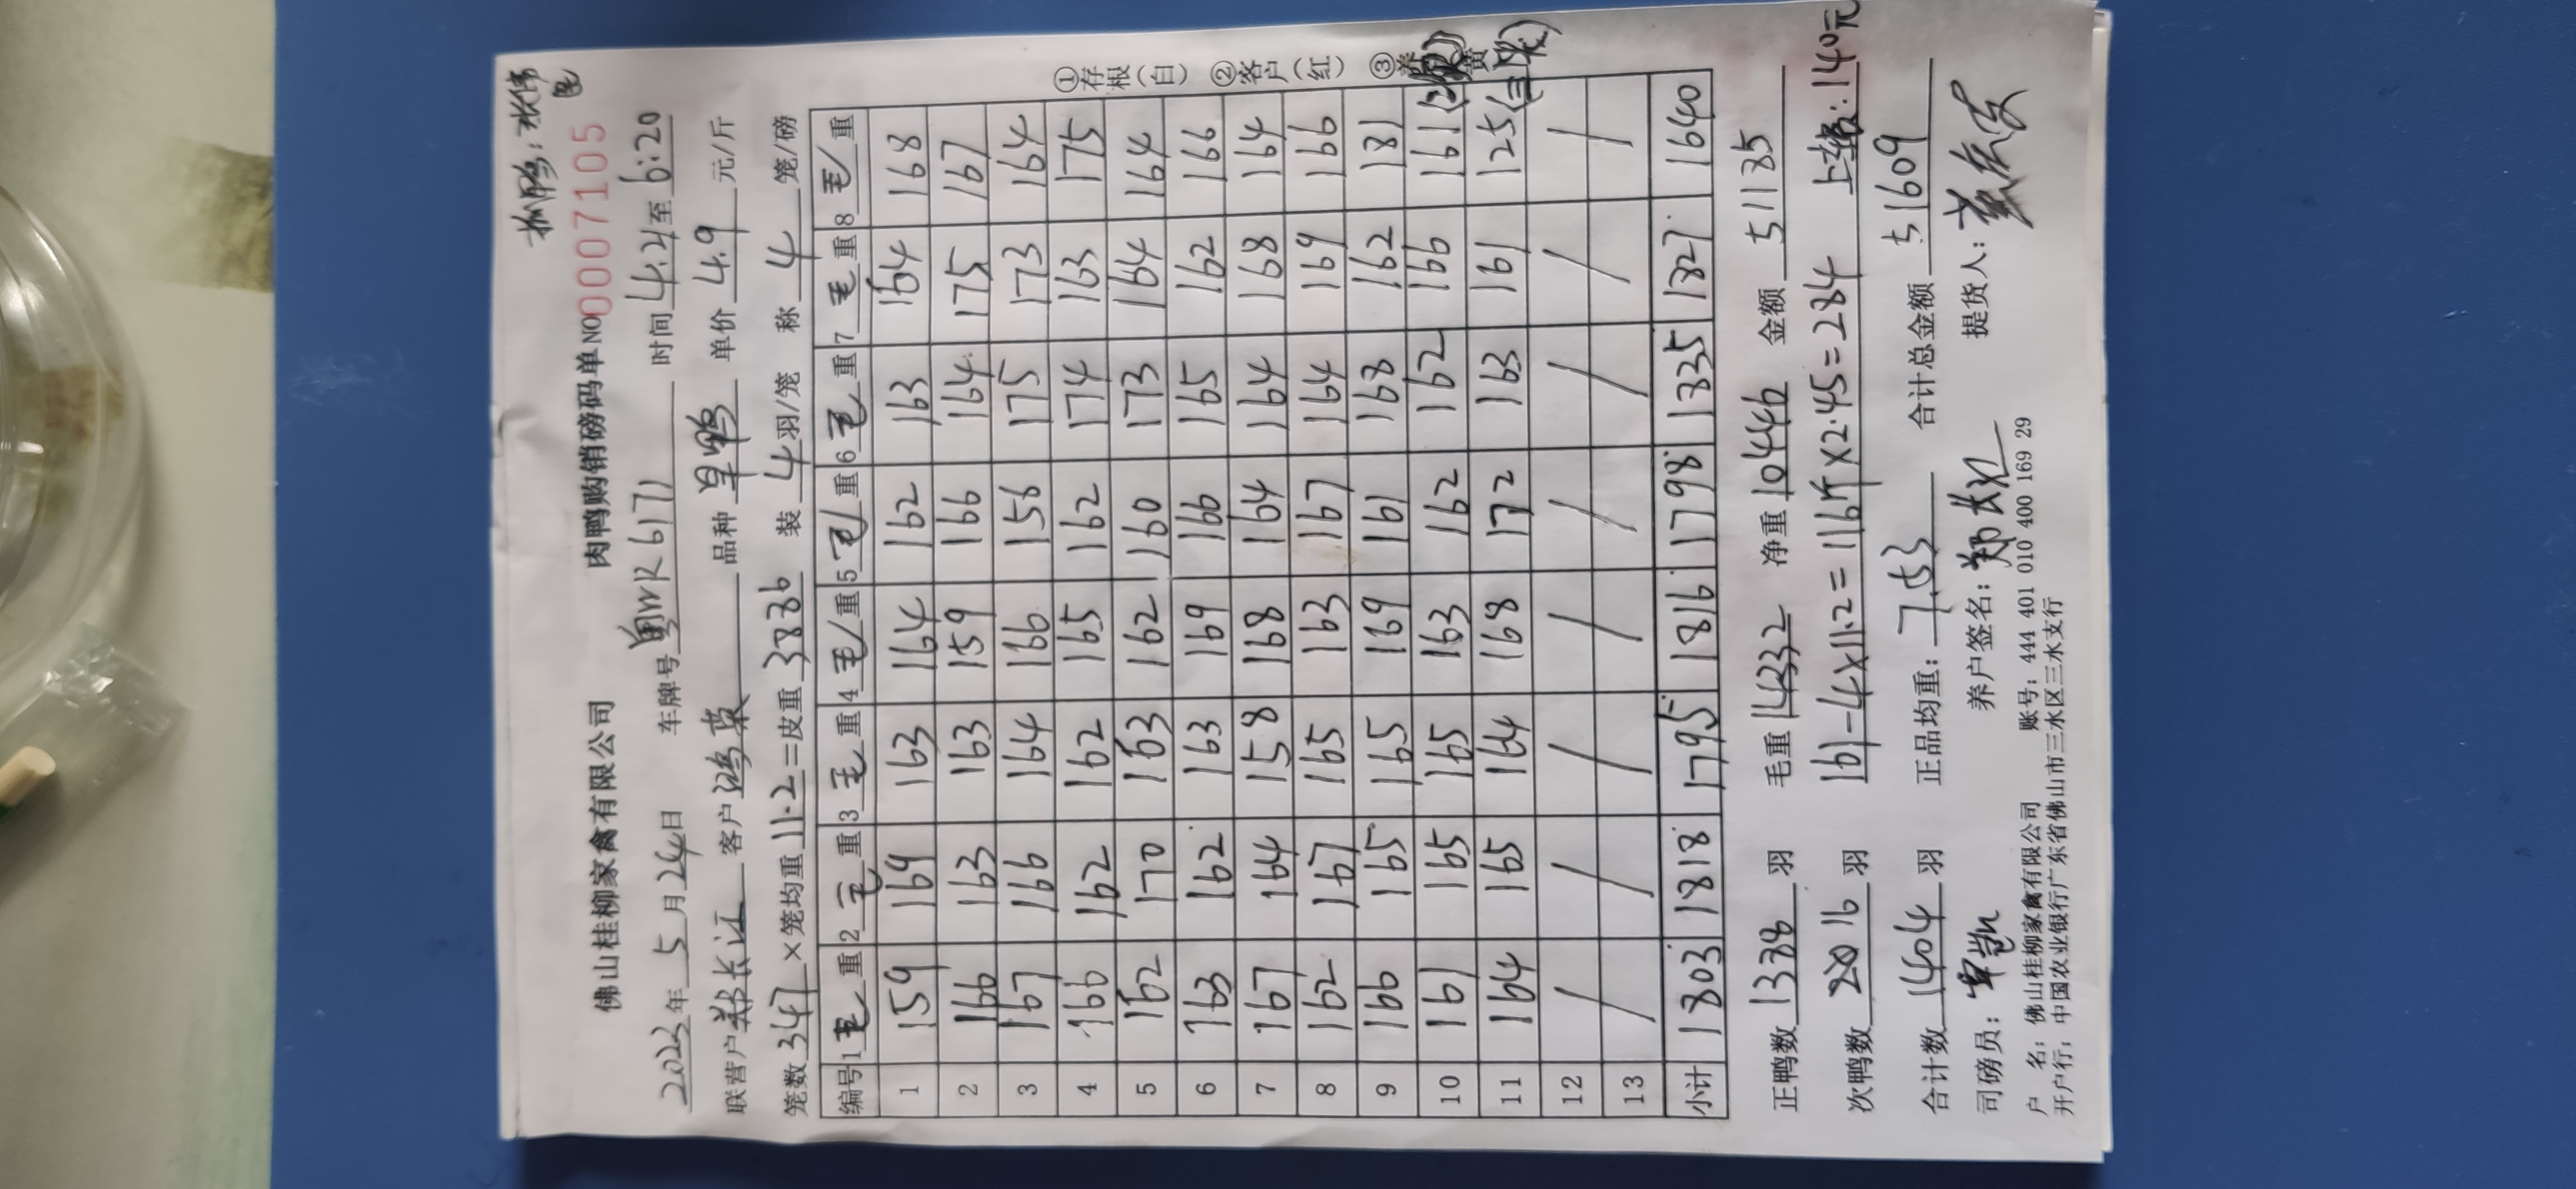 抓鸭:张伟
佛山桂柳家禽有限公司 肉鸭购销磅码单 NO 0007105
2023年5月24日 车牌号 粤WR6171 时间 4:21至6:20
联营户 郑长江 客户 鸿英 品种 旱鸭 单价 4.9 元/斤
笼数 347 ×笼均重 11.2 =皮重 3886 装 4 羽/笼 称 4 笼/磅
编号 1毛重 2毛重 3毛重 4毛重 5毛重 6毛重 7毛重 8毛重
1 159 169 163 164 162 163 164 168
2 166 163 163 159 166 164 175 167
3 167 166 164 166 156 175 173 164
4 166 162 162 165 162 174 163 175
5 162 170 163 162 160 173 164 164
6 163 162 163 169 166 165 162 166
7 167 164 158 168 164 164 168 164
8 162 167 165 163 167 164 169 166
9 166 165 165 169 161 168 162 181
10 161 165 165 163 162 162 166 161
11 164 165 164 168 172 163 161 125
12 / / / / / / / /
13
小计 1803 1818 1795 1816 1798 1835 1827 1640
①存根(白) ②客户(红) ③养 黄
正鸭数 1388 羽 毛重 14332 净重 10446 金额 51185
次鸭数 16 羽 161-4×11.2=116斤×2.45=284 上车:140元
合计数 1404 羽 正品均重: 7.53 合计总金额 51609
司磅员: 养户签名:郑长江 提货人:
户 名:佛山桂柳家禽有限公司 账号:444 401 010 400 169 29
开户行:中国农业银行广东省佛山市三水区三水支行